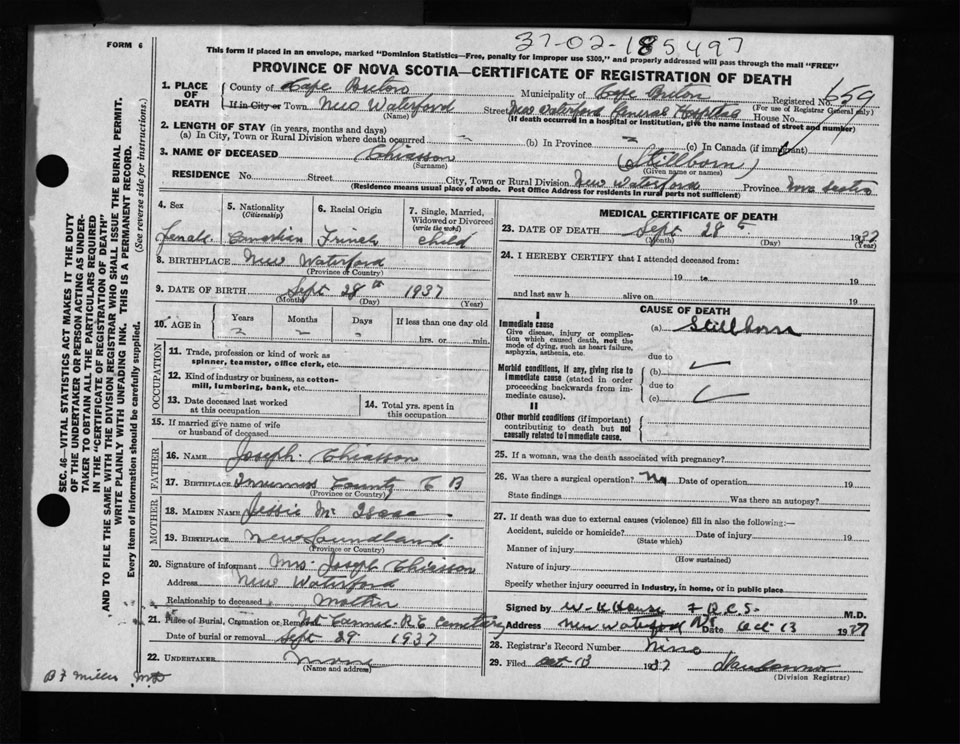 FORM 6
37-02-185497
This form if placed in an envelope, marked "Dominion Statistics—Free, penalty for improper use $300," and properly addressed will pass through the mail "FREE"
PROVINCE OF NOVA SCOTIA—CERTIFICATE OF REGISTRATION OF DEATH
1. PLACE OF DEATH
County of Cape Breton Municipality of Cape Breton Registered No. 659
(For use of Registrar General only)
If in City or Town New Waterford Street New Waterford General Hospital House No.
(Name) (If death occurred in a hospital or institution, give the name instead of street and number)
2. LENGTH OF STAY (in years, months and days)
(a) In City, Town or Rural Division where death occurred (b) In Province (c) In Canada (if immigrant)
3. NAME OF DECEASED Chiasson (Stillborn)
(Surname) (Given name or names)
RESIDENCE No. Street City, Town or Rural Division New Waterford Province Nova Scotia
(Residence means usual place of abode. Post Office Address for residents in rural parts not sufficient)
4. Sex Female
5. Nationality (Citizenship) Canadian
6. Racial Origin French
7. Single, Married, Widowed or Divorced (write the word) Child
8. BIRTHPLACE New Waterford
(Province or Country)
9. DATE OF BIRTH Sept 28th 1937
(Month) (Day) (Year)
10. AGE in Years Months Days If less than one day old
hrs. or min.
OCCUPATION
11. Trade, profession or kind of work as spinner, teamster, office clerk, etc.
12. Kind of industry or business, as cotton-mill, lumbering, bank, etc.
13. Date deceased last worked at this occupation
14. Total yrs. spent in this occupation
15. If married give name of wife or husband of deceased
FATHER
16. NAME Joseph Chiasson
17. BIRTHPLACE Inverness County C B
(Province or Country)
MOTHER
18. MAIDEN NAME Jessie Mc Isaac
19. BIRTHPLACE Newfoundland
(Province or Country)
20. Signature of informant Mrs. Joseph Chiasson
Address New Waterford
Relationship to deceased Mother
21. Place of Burial, Cremation or Removal Mt Carmel R.C. Cemetery
Date of burial or removal Sept 29 1937
22. UNDERTAKER None
(Name and address)
B F Miller MD
MEDICAL CERTIFICATE OF DEATH
23. DATE OF DEATH Sept 28th 1937
(Month) (Day) (Year)
24. I HEREBY CERTIFY that I attended deceased from:
19 to 19
and last saw h alive on 19
CAUSE OF DEATH
I
Immediate cause
Give disease, injury or complication which caused death, not the mode of dying, such as heart failure, asphyxia, asthenia, etc.
(a) Stillborn
due to
Morbid conditions, if any, giving rise to immediate cause (stated in order proceeding backwards from immediate cause).
(b)
due to
(c)
II
Other morbid conditions (if important) contributing to death but not causally related to immediate cause.
25. If a woman, was the death associated with pregnancy?
26. Was there a surgical operation? No Date of operation 19
State findings Was there an autopsy?
27. If death was due to external causes (violence) fill in also the following:—
Accident, suicide or homicide? Date of injury 19
(State which)
Manner of injury
(How sustained)
Nature of injury
Specify whether injury occurred in industry, in home, or in public place
Signed by M.D.
Address New Waterford NS Date Oct 13 1937
28. Registrar's Record Number
29. Filed Oct 13 1937
(Division Registrar)
SEC. 46—VITAL STATISTICS ACT MAKES IT THE DUTY
OF THE UNDERTAKER OR PERSON ACTING AS UNDER-
TAKER TO OBTAIN ALL THE PARTICULARS REQUIRED
IN THE "CERTIFICATE OF REGISTRATION OF DEATH"
AND TO FILE THE SAME WITH THE DIVISION REGISTRAR WHO SHALL ISSUE THE BURIAL PERMIT.
WRITE PLAINLY WITH UNFADING INK. THIS IS A PERMANENT RECORD.
Every item of Information should be carefully supplied. (See reverse side for instructions.)